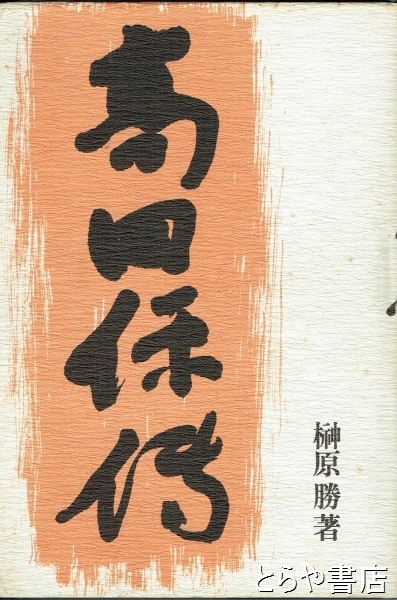 高田保伝
榊原勝著
とらや書店